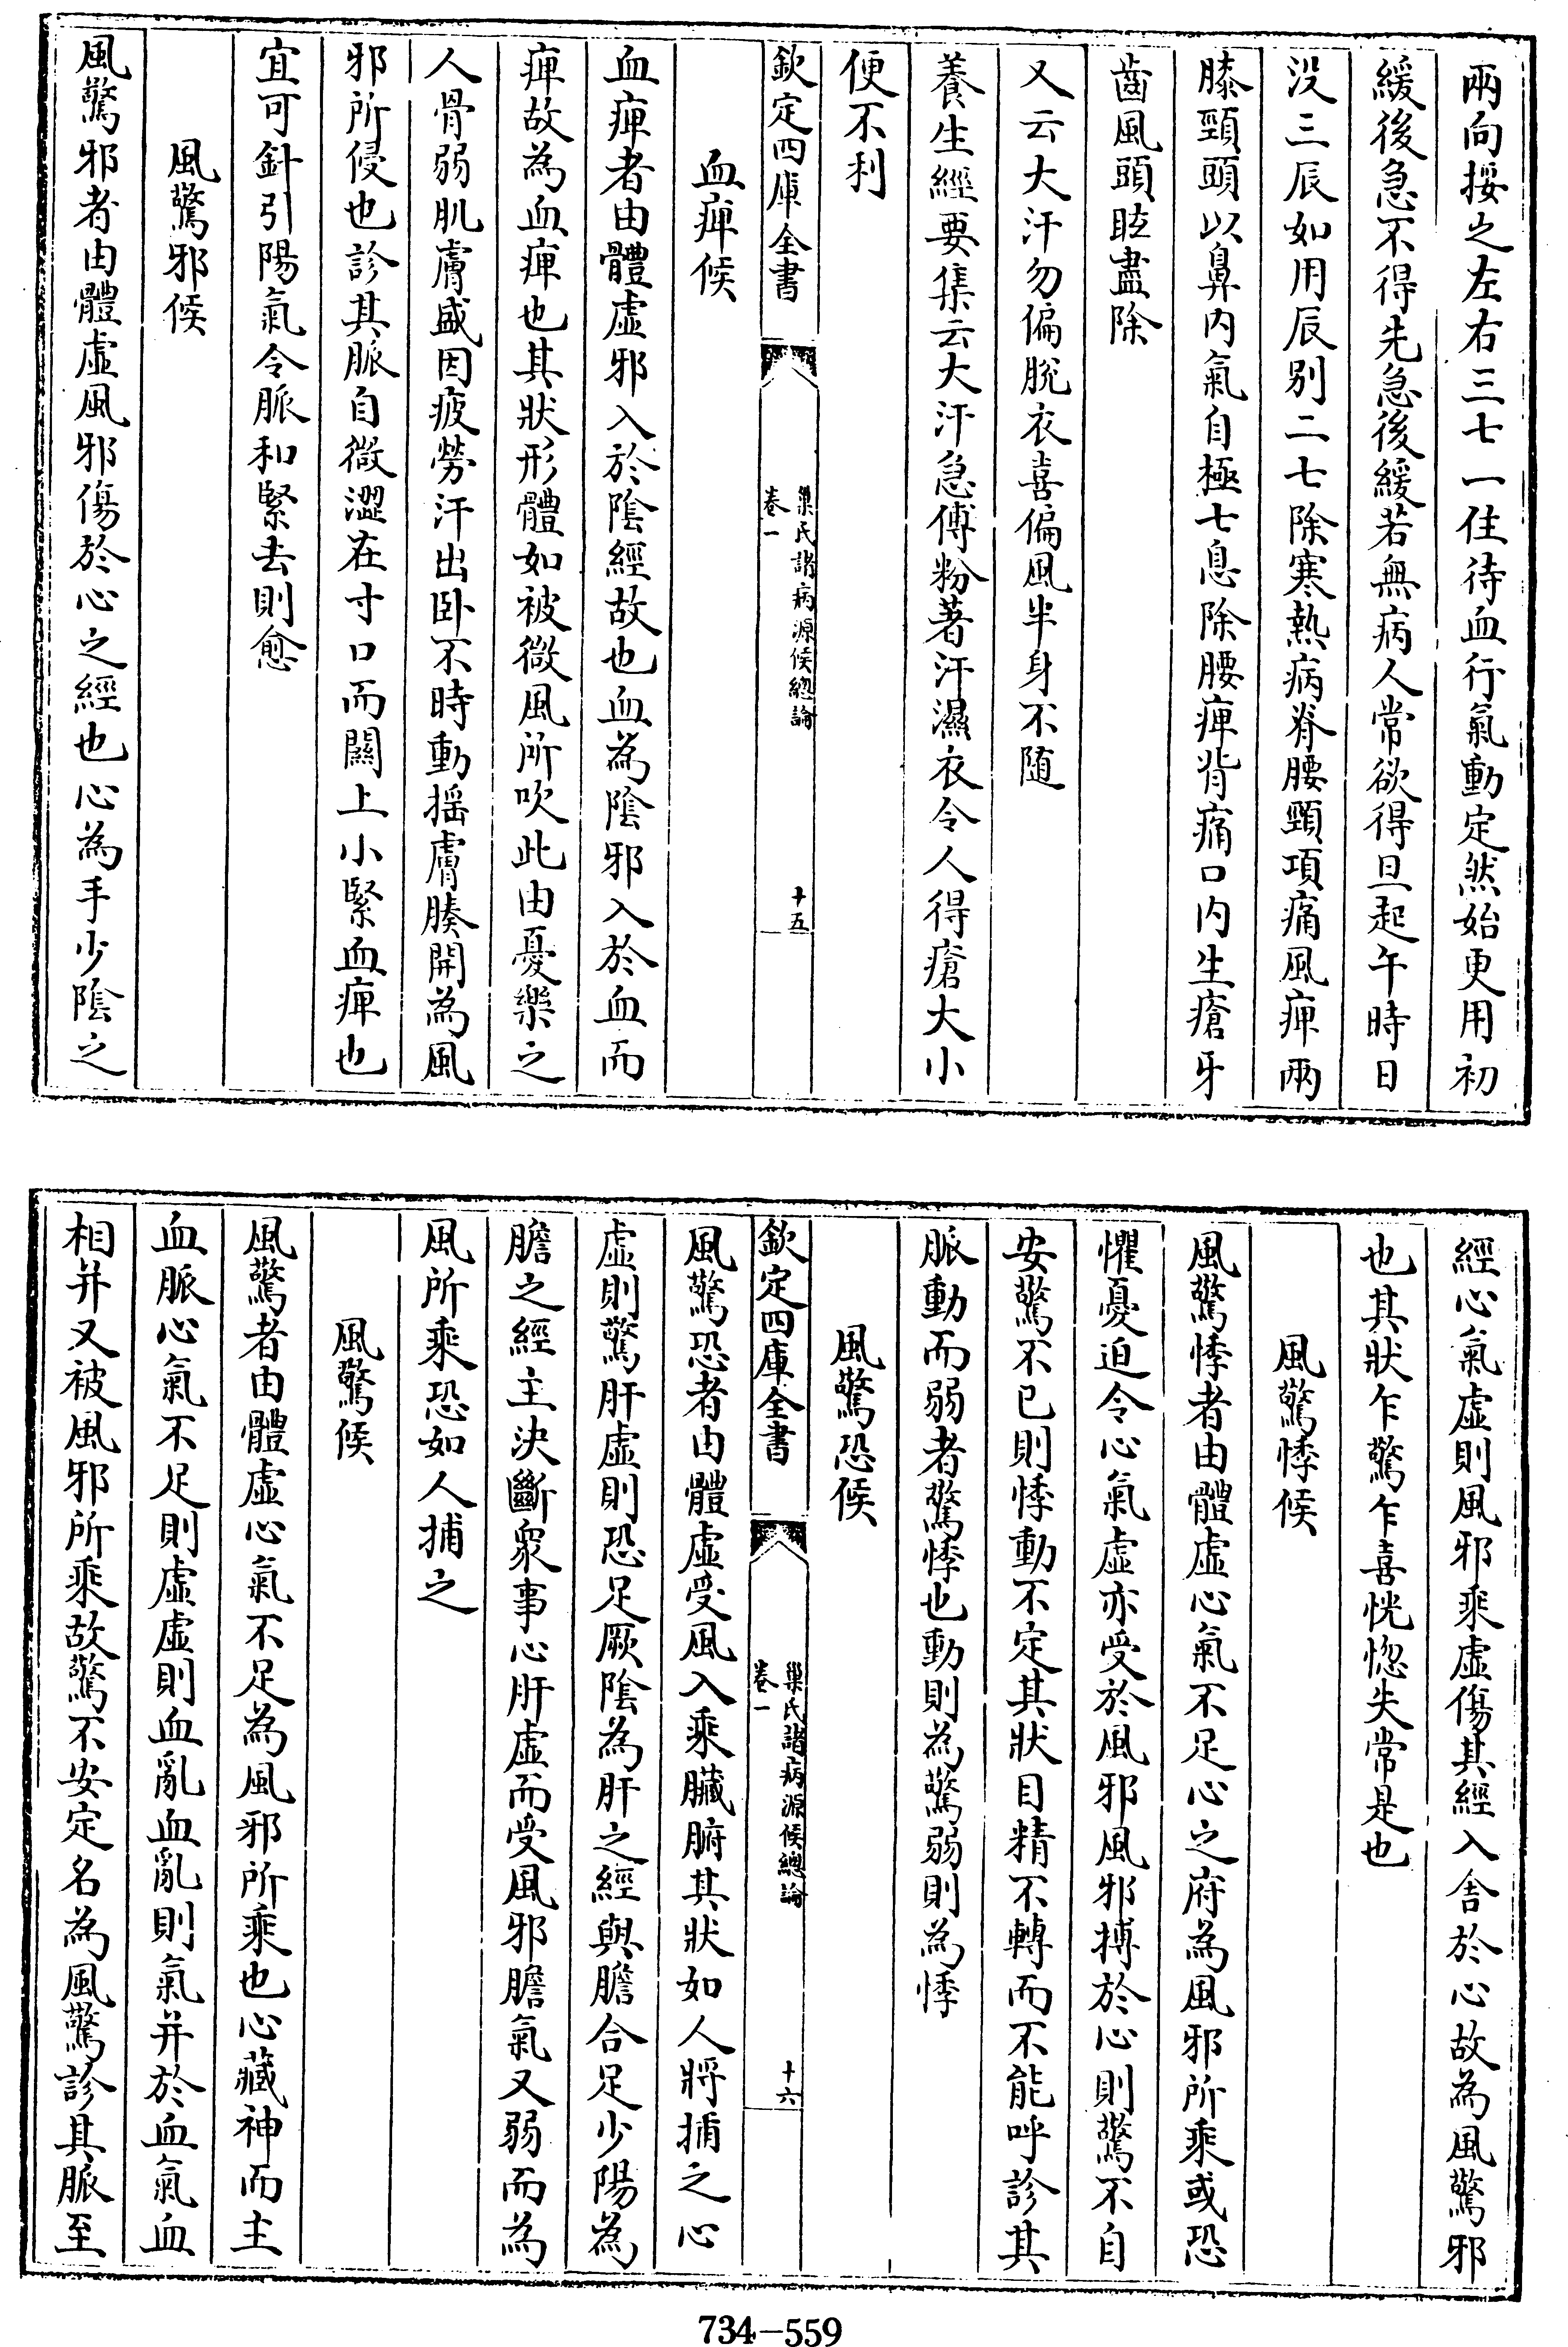 兩向挼之左右三七一住待血行氣動定然始更用初
緩後急不得先急後緩若無病人常欲得旦起午時日
没三辰如用辰别二七除寒熱病脊腰頸項痛風痺兩
膝頸頭以鼻内氣自極七息除腰痺背痛口内生瘡牙
齒風頭眩盡除
又云大汗勿偏脫衣喜偏風半身不随
養生經要集云大汗急傅粉著汗濕衣令人得瘡大小
便不利
欽定四庫全書
巢氏諸病源候總論
卷一
十五
血痺候
血痺者由體虛邪入於陰經故也血為陰邪入於血而
痺故為血痺也其狀形體如被微風所吹此由憂樂之
人骨弱肌膚盛因疲勞汗出卧不時動摇膚腠開為風
邪所侵也診其脈自微澀在寸口而關上小緊血痺也
宜可針引陽氣令脈和緊去則愈
風驚邪候
風驚邪者由體虛風邪傷於心之經也心為手少陰之
經心氣虛則風邪乘虛傷其經入舍於心故為風驚邪
也其狀乍驚乍喜恍惚失常是也
風驚悸候
風驚悸者由體虛心氣不足心之府為風邪所乘或恐
懼憂迫令心氣虛亦受於風邪風邪搏於心則驚不自
安驚不已則悸動不定其狀目精不轉而不能呼診其
脈動而弱者驚悸也動則為驚弱則為悸
風驚恐候
欽定四庫全書
巢氏諸病源候總論
卷一
十六
風驚恐者由體虛受風入乘臟腑其狀如人將捕之心
虛則驚肝虛則恐足厥陰為肝之經與膽合足少陽為
膽之經主決斷衆事心肝虛而受風邪膽氣又弱而為
風所乘恐如人捕之
風驚候
風驚者由體虛心氣不足為風邪所乘也心藏神而主
血脈心氣不足則虛虛則血亂血亂則氣并於血氣血
相并又被風邪所乘故驚不安定名為風驚診其脈至
734-559